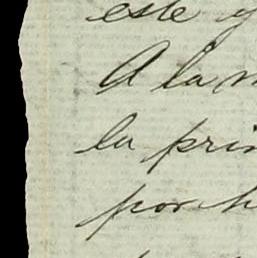 este y
A la m
la prin
por h